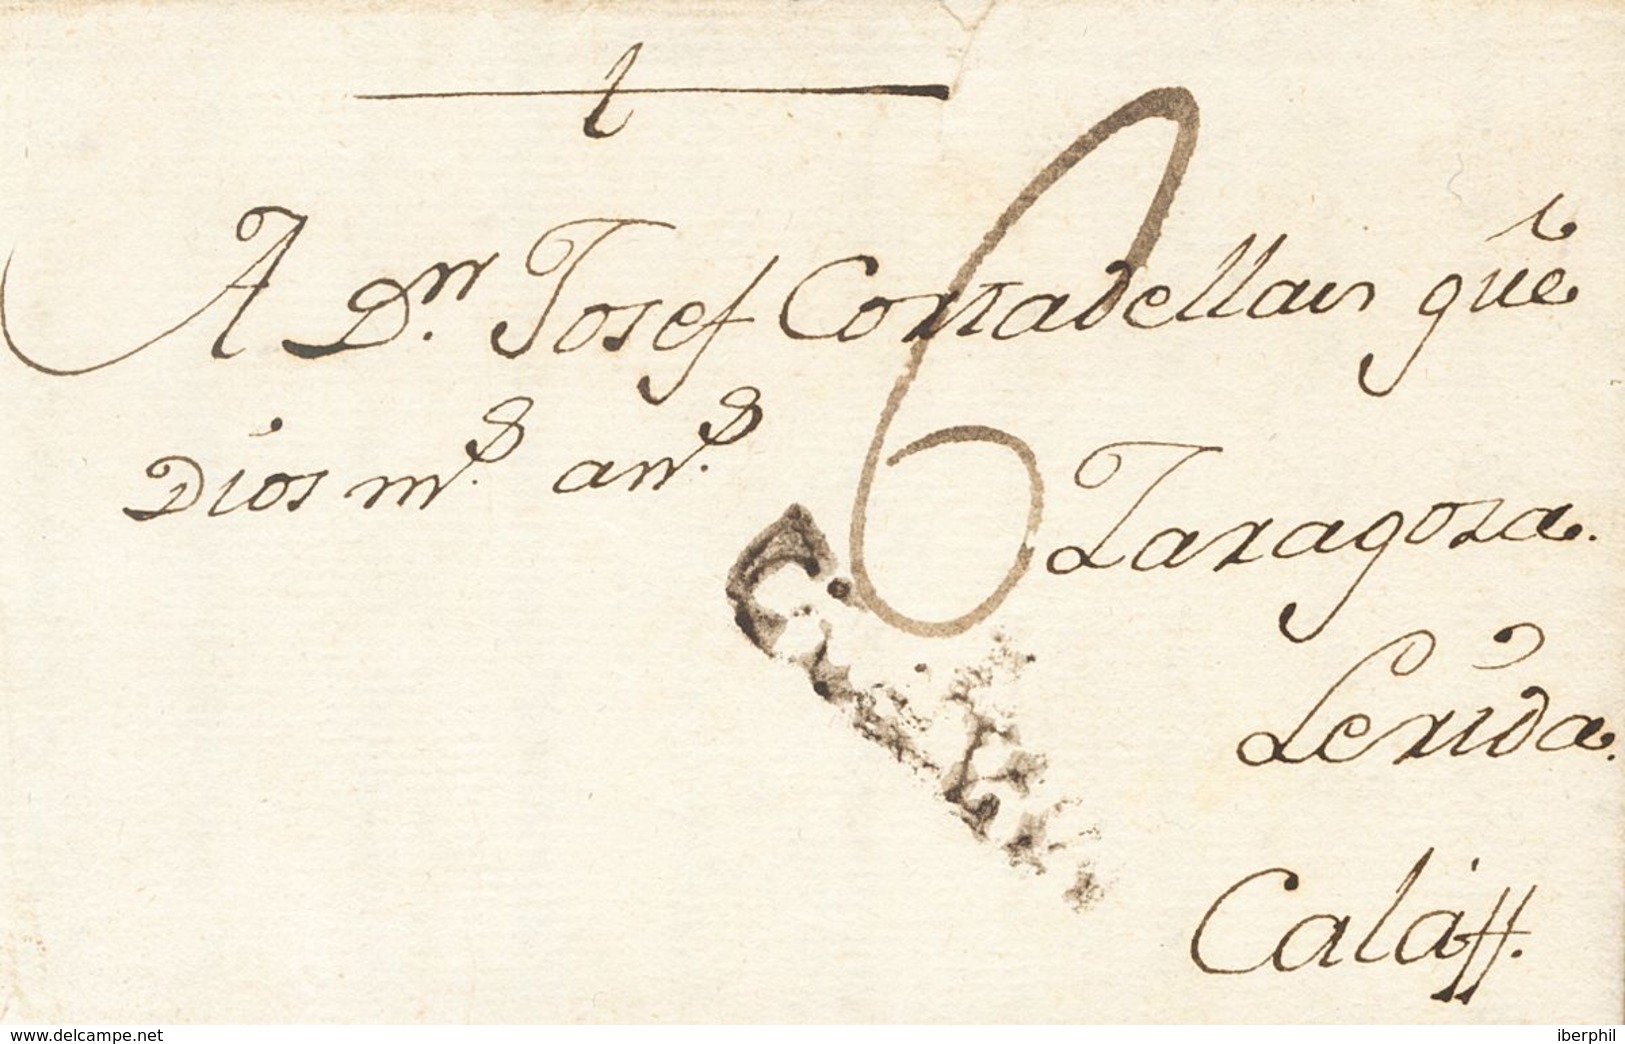 A Dn. Josef Cortadellas q̃ue
Dios ms. ans.
6
Taragoza.
Lerida.
Calaff.
www.delcampe.net
iberphil